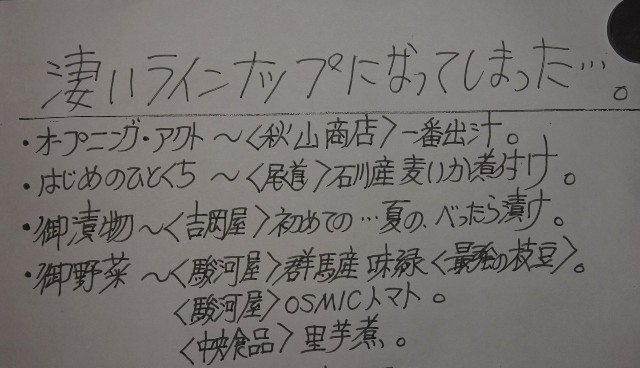 凄いラインナップになってしまった…。
・オープニング・アクト〜〈秋山商店〉一番出汁。
・はじめのひとくち〜〈尾道〉石川産麦いか煮付け。
・御漬物〜〈吉岡屋〉初めての…夏の、べったら漬け。
・御野菜〜〈駿河屋〉群馬産味緑〈最強の枝豆〉。
〈駿河屋〉OSMICトマト。
〈中央食品〉里芋煮、。